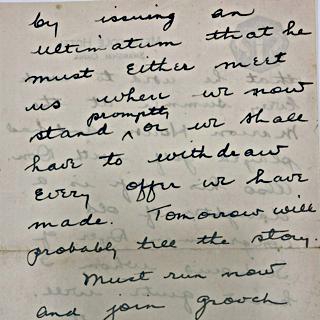 by issuing an
ultimatum that he
must either meet
us when we now
promptly
stand ^ or we shall
have to withdraw
every offer we have
made. Tomorrow will
probably tell the story.
Must run now
and join grouch